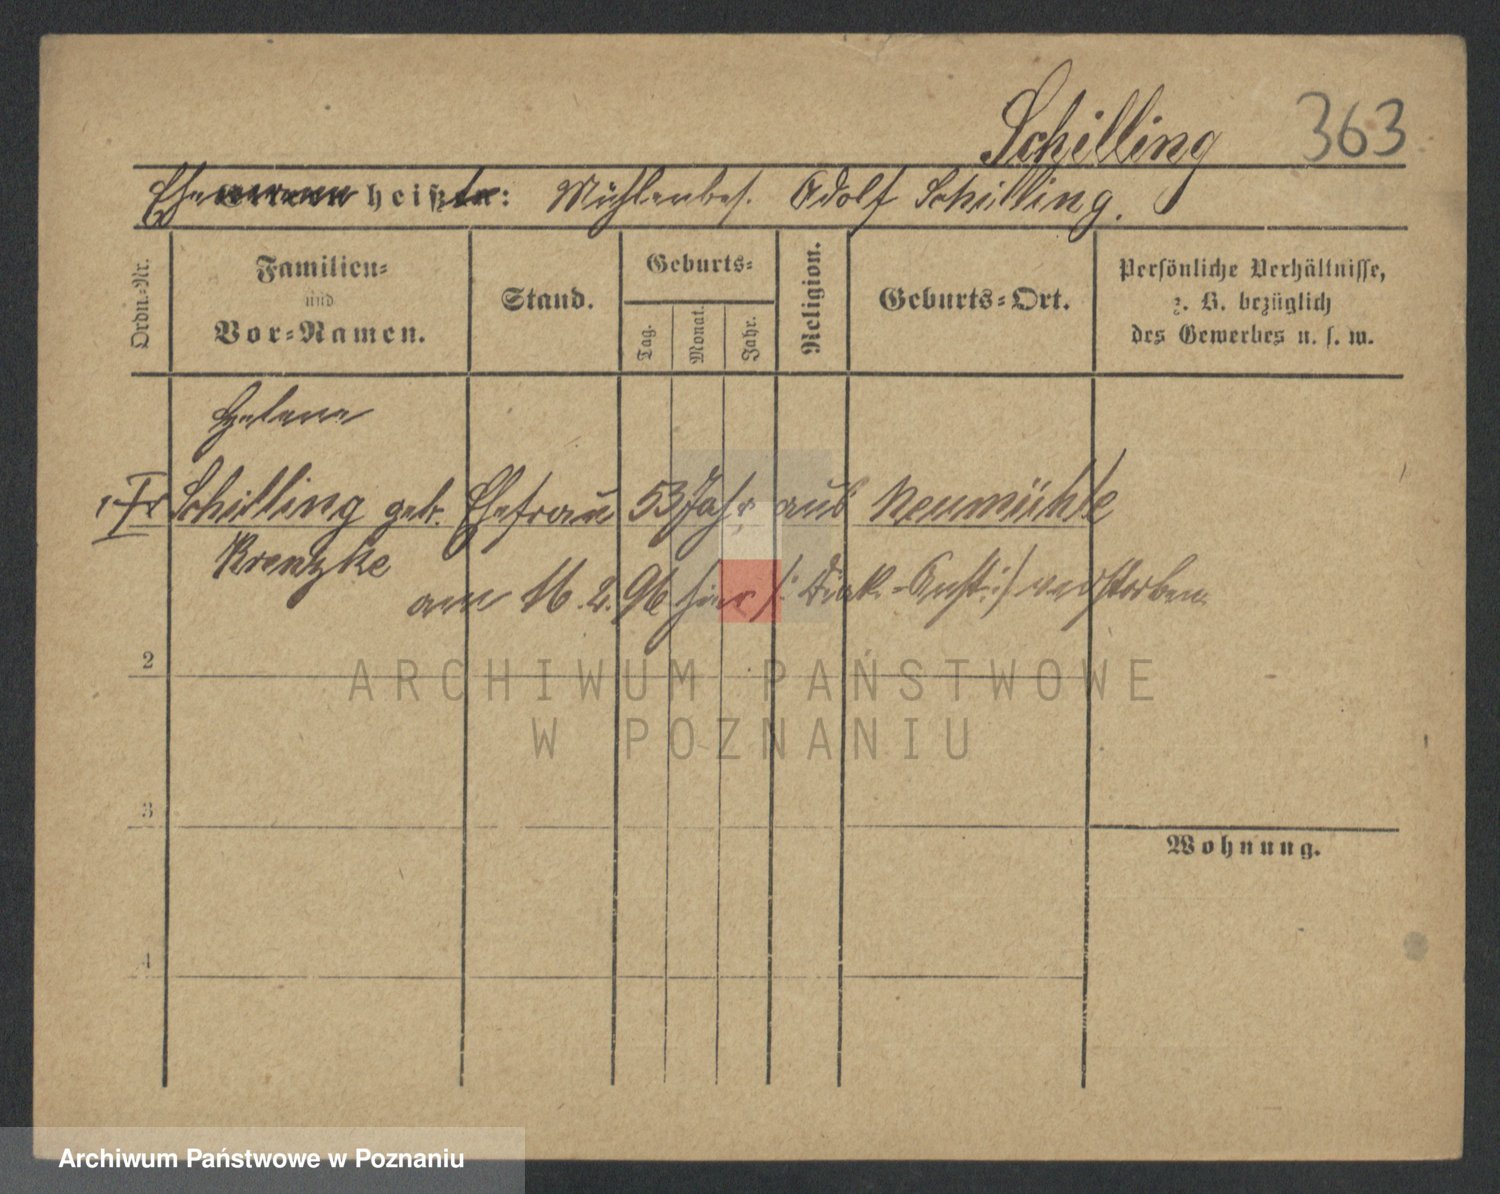 Schilling 363
Ehemann heißt: Mühlenbes. Adolf Schilling.
Ordn.-Nr.
Familien-
und
Vor-Namen.
Stand.
Geburts-
Tag.
Monat.
Jahr.
Religion.
Geburts-Ort.
Persönliche Verhältnisse,
z. B. bezüglich
des Gewerbes u. s. w.
Helene
1 Fr Schilling geb. Ehefrau 53 Jahr aus Neumühle
Krentzke
am 16.2.96 hier /: Diak.-Anst :/ verstorben
2
ARCHIWUM PAŃSTWOWE
W POZNANIU
3
Wohnung.
4
Archiwum Państwowe w Poznaniu